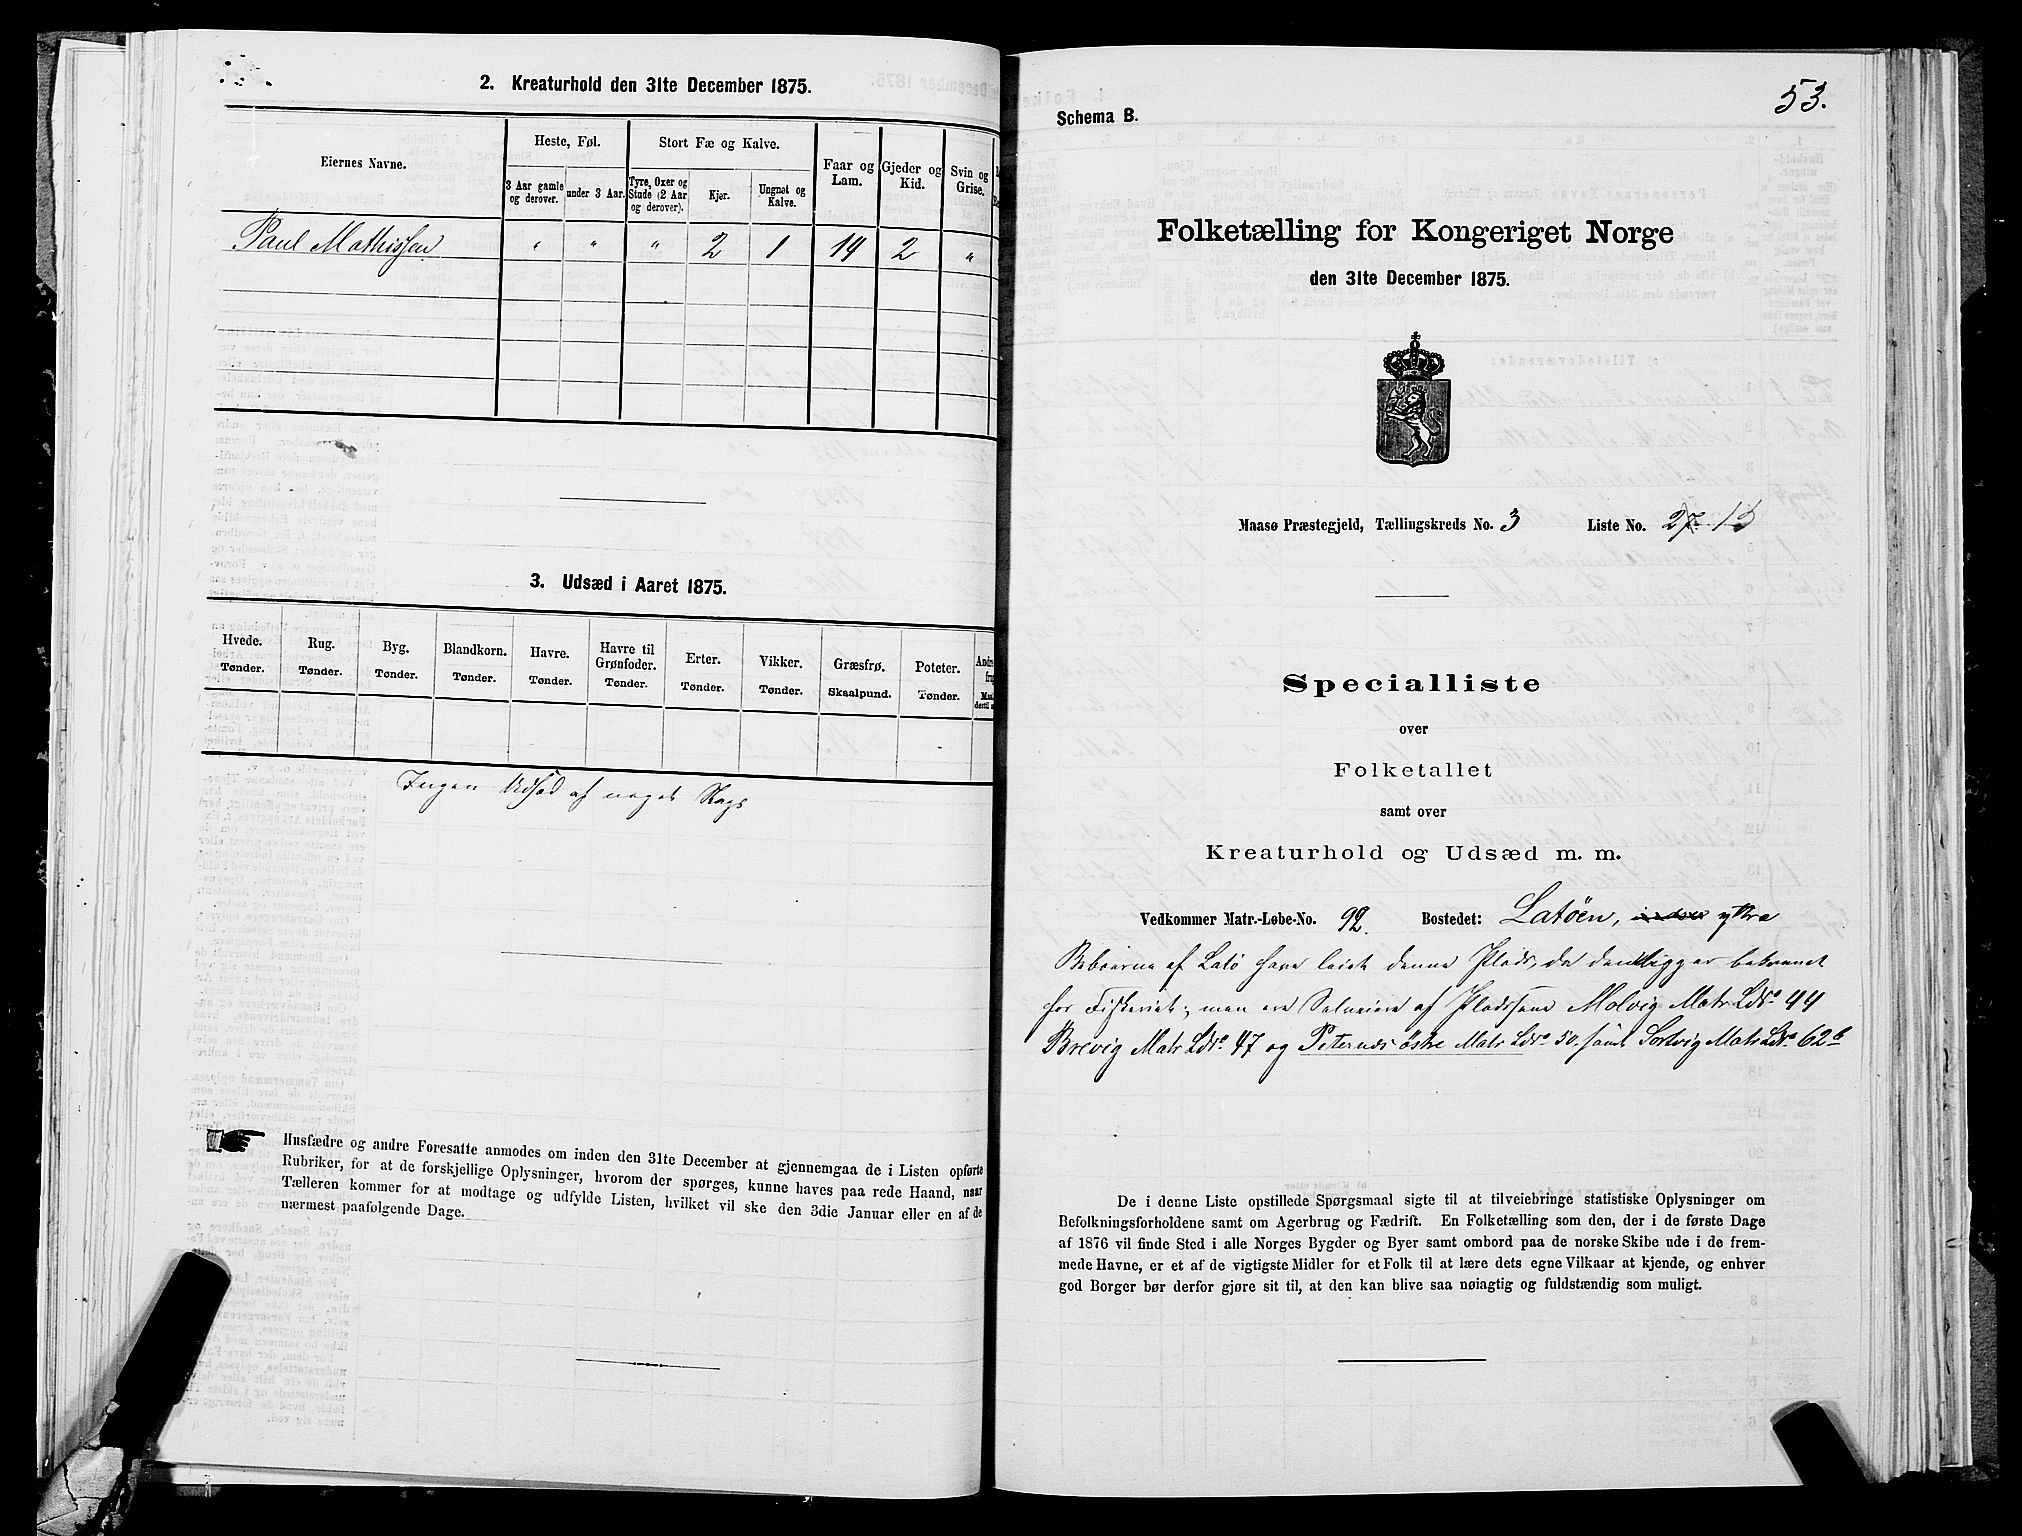 2. Kreaturhold den 31te December 1875.
Eiernes Navne.
Heste, Føl.
Stort Fæ og Kalve.
Faar og Lam.
Gjeder og Kid.
Svin og Grise.
3 Aar gamle og derover.
under 3 Aar.
Tyre, Oxer og Stude (2 Aar og derover).
Kjer.
Ungnøt og Kalve.
Paul Mathissen " " " 2 1 14 2 "
3. Udsæd i Aaret 1875.
Hvede. Rug. Byg. Blandkorn. Havre. Havre til Grønfoder. Erter. Vikker. Græsfrø. Poteter.
Tønder. Tønder. Tønder. Tønder. Tønder. Tønder. Tønder. Tønder. Skaalpund. Tønder.
Ingen Udsæd af noget Slags
Husfædre og andre Foresatte anmodes om inden den 31te December at gjennemgaa de i Listen opførte
Rubriker, for at de forskjellige Oplysninger, hvorom der spørges, kunne haves paa rede Haand, naar
Tælleren kommer for at modtage og udfylde Listen, hvilket vil ske den 3die Januar eller en af de
nærmest paafølgende Dage.
53.
Schema B.
Folketælling for Kongeriget Norge
den 31te December 1875.
Maasø Præstegjeld, Tællingskreds No. 3 Liste No. 27. 13
Specialliste
over
Folketallet
samt over
Kreaturhold og Udsæd m. m.
Vedkommer Matr.-Løbe-No. 92. Bostedet: Latøen, indre ytre
Beboerne af Latø have leiet denne Plads, da den ligger bekvemt
for Fiskeriet; men ere Selveiere af Pladsene Molvig Matr Lds. 44
Brevig Matr Lds. 47 og Peternes østre Matr Lds. 50. samt Sortvig Matr Lds. 62b
De i denne Liste opstillede Spørgsmaal sigte til at tilveiebringe statistiske Oplysninger om
Befolkningsforholdene samt om Agerbrug og Fædrift. En Folketælling som den, der i de første Dage
af 1876 vil finde Sted i alle Norges Bygder og Byer samt ombord paa de norske Skibe ude i de frem-
mede Havne, er et af de vigtigste Midler for et Folk til at lære dets egne Vilkaar at kjende, og enhver
god Borger bør derfor gjøre sit til, at den kan blive saa nøiagtig og fuldstændig som muligt.